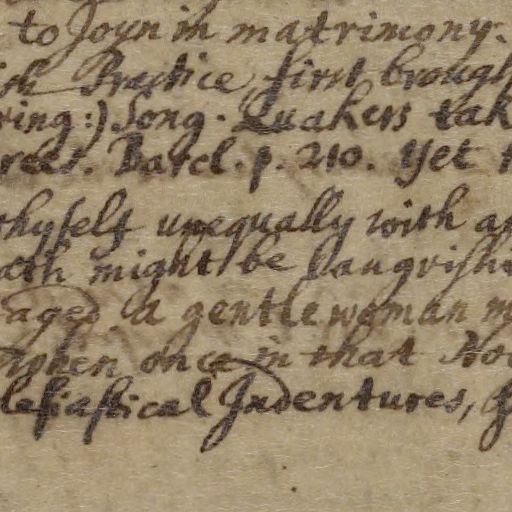 to Joyn in matrimony.
ish Practice, first brough
ring:) Song. Quakers tak
rees. Barcl. p. 210. Yet
thyself unequally with a
ath might be languishi
aged a gentlewoman m
when once in that Noo
lesiastical Indentures,